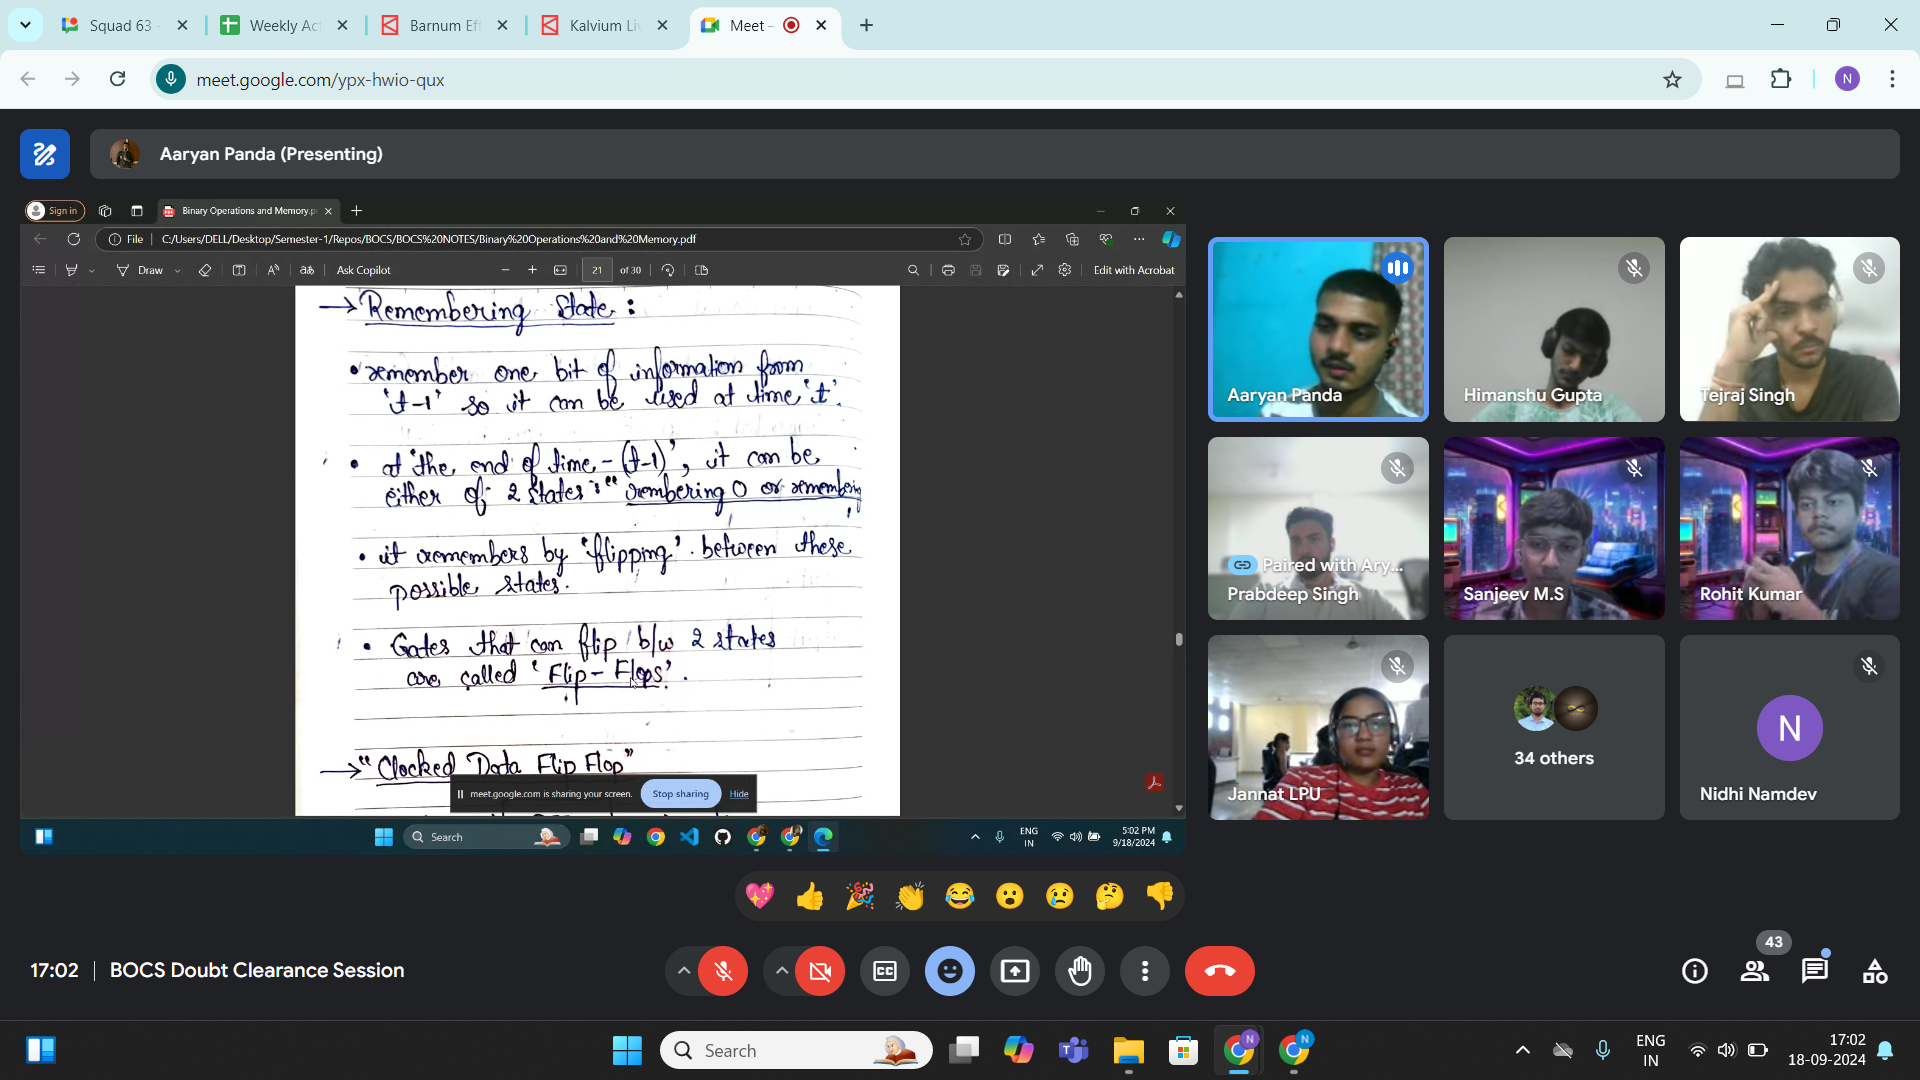 Squad 63 -
Weekly Act
Barnum Eff
Kalvium Liv
Meet -
meet.google.com/ypx-hwio-qux
N
Aaryan Panda (Presenting)
Sign in
Binary Operations and Memory.p
File
C:/Users/DELL/Desktop/Semester-1/Repos/BOCS/BOCS%20NOTES/Binary%20Operations%20and%20Memory.pdf
Draw
Ask Copilot
21
of 30
Edit with Acrobat
→ Remembering State :
• remember one bit of information from
't-1' so it can be used at time 't'.
• at the end of time - (t-1)', it can be
either of 2 states : " rembering 0 or remembering
1
• it remembers by 'flipping' between these
possible states.
• Gates that can flip b/w 2 states
are called 'Flip-Flops'.
→ "Clocked Data Flip Flop"
meet.google.com is sharing your screen.
Stop sharing
Hide
Search
ENG
IN
5:02 PM
9/18/2024
Aaryan Panda
Himanshu Gupta
Tejraj Singh
Paired with Ary...
Prabdeep Singh
Sanjeev M.S
Rohit Kumar
Jannat LPU
34 others
N
Nidhi Namdev
17:02
BOCS Doubt Clearance Session
CC
43
Search
N
N
ENG
IN
17:02
18-09-2024